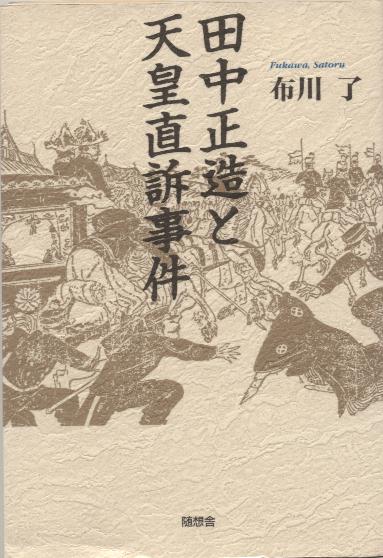 田中正造と
天皇直訴事件
Fukawa, Satoru
布川 了
随想舎